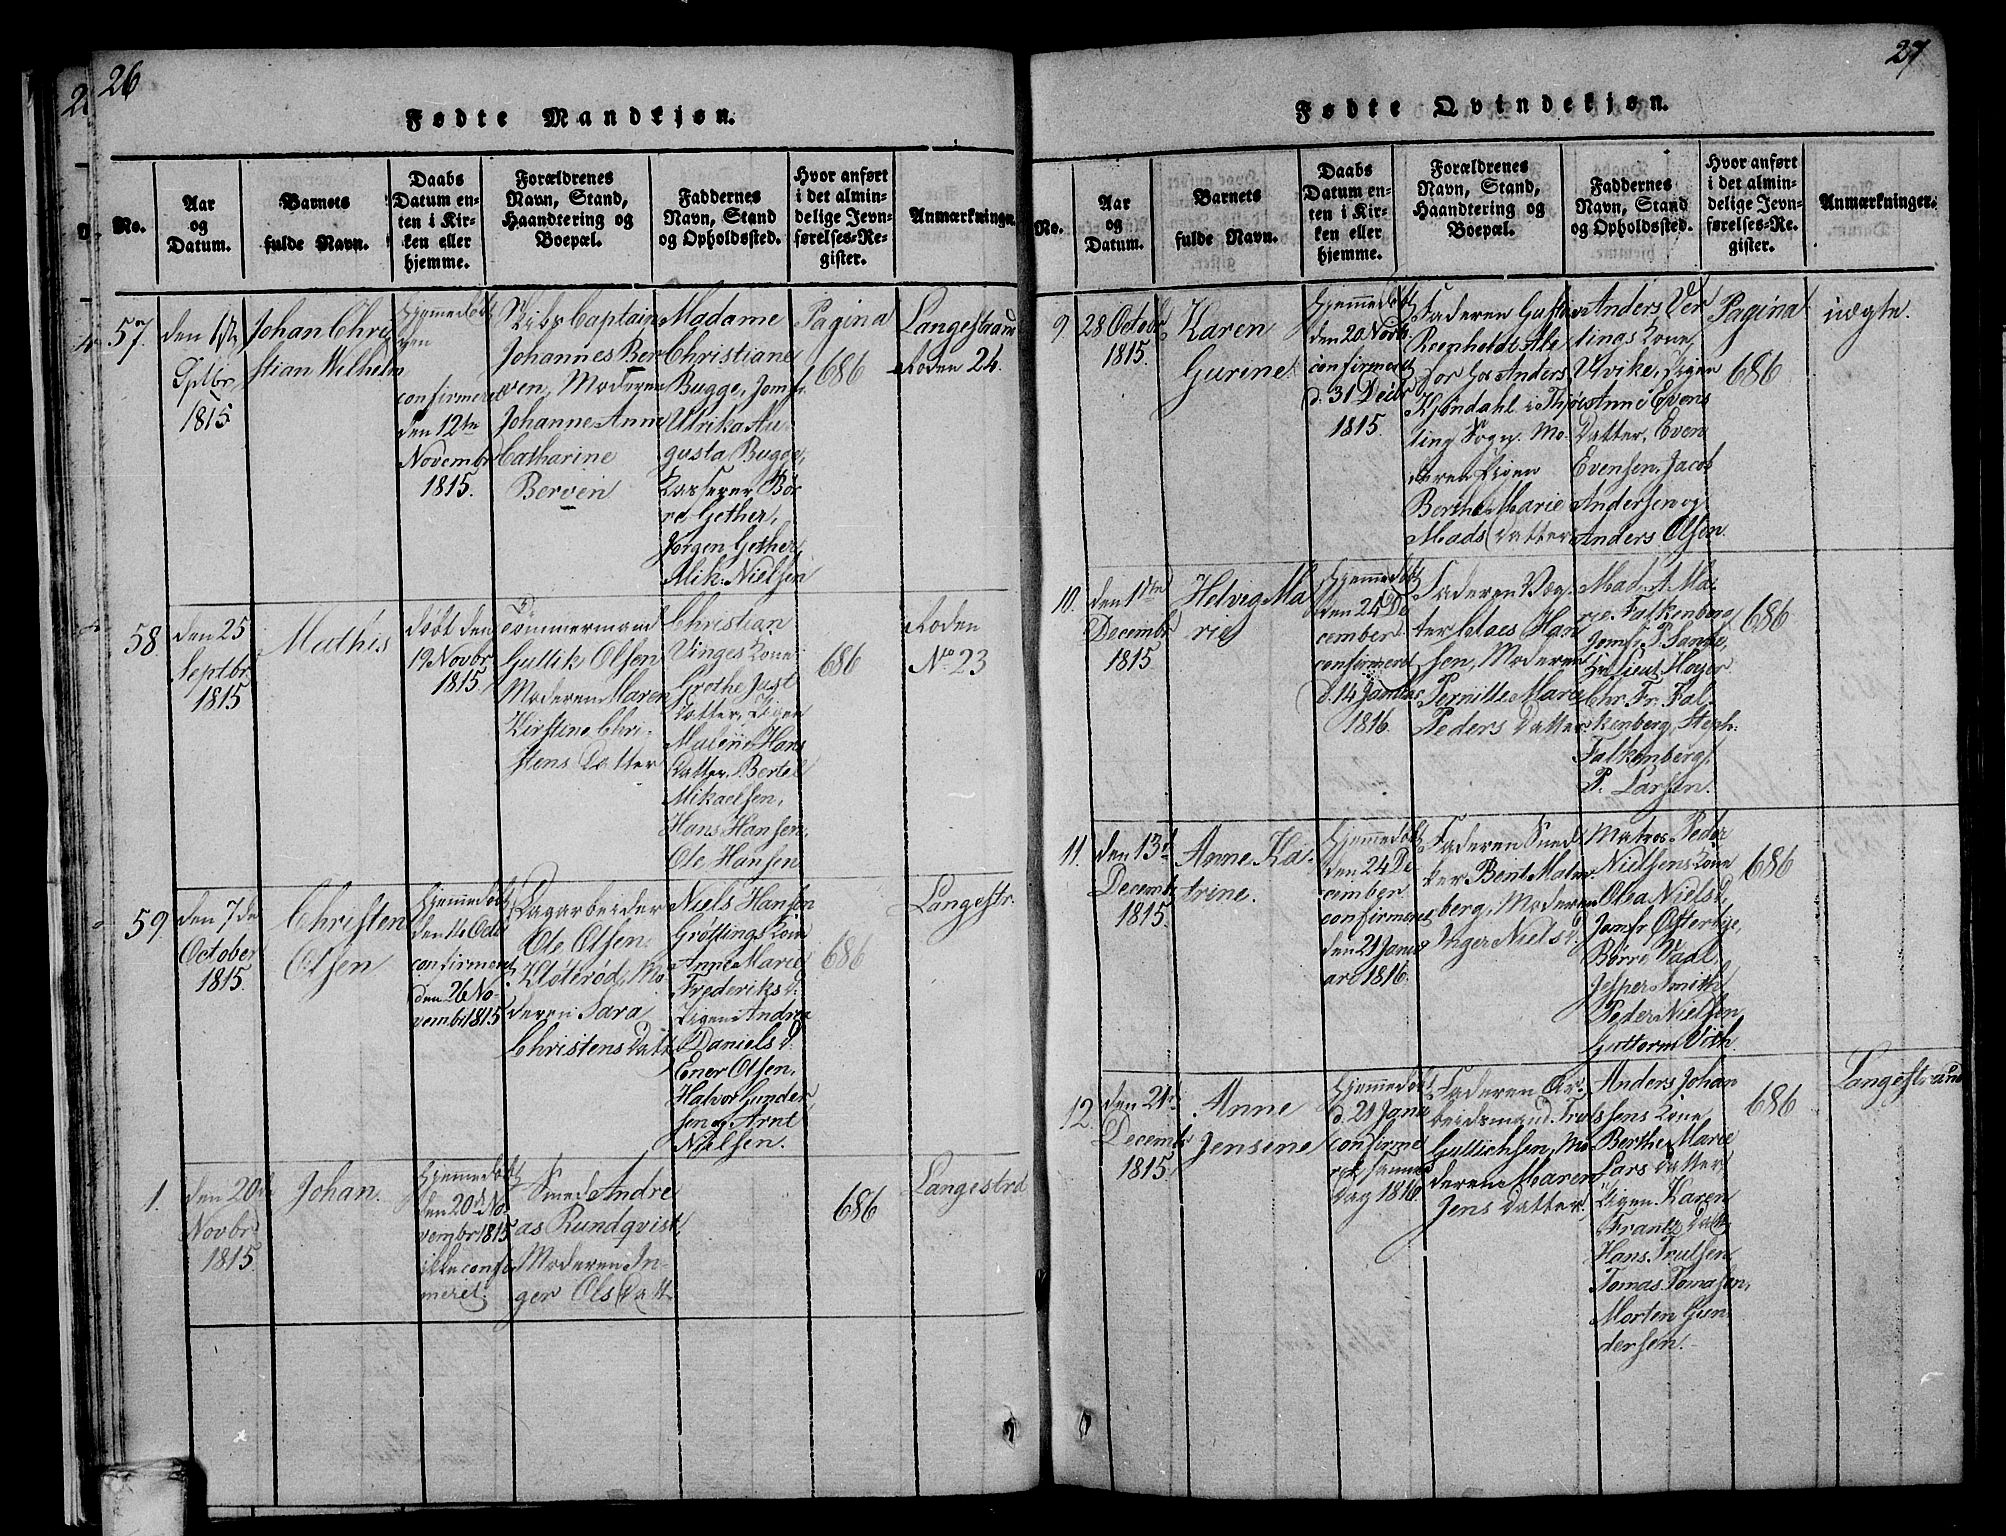 26
Fødte Mandkjøn.
No.
Aar
og
Datum.
Barnets
fulde Navn.
Daabs
Datum en-
ten i Kir-
ken eller
hjemme.
Forældrenes
Navn, Stand,
Haandtering og
Boepæl.
Faddernes
Navn, Stand
og Opholdssted.
Hvor anført
i det almin-
delige Jevn-
førelses-Re-
gister.
Anmærkninger.
57.
Sptbr
1815
Johan Chri
stian Wilhelm
Hjemmedøbt
confirmeret
den 12te
Novembr
1815.
Skibs Captain
Johannes Ber
ven, Moderen
Johanne Anne
Catharine
Berven
Madame
Christiane
Bugge, Jomfr.
Ulrika Au
gusta Bugge,
Kasserer Bör
re Gether,
Jörgen Gether,
Mik. Nielsen
Pagina
686
Langestrand
Roden 24.
58.
den 25
Septbr
1815
Mathis
döbt den
19 Novbr
1815.
Tömmermand
Gullik Olsen
Moderen Maren
Kirstine Chri-
stens Datter
Christian
Vinges Kone
Grothe Just
Datter, Pigen
Malene Hans
Datter, Bertel
Mikaelsen,
Hans Hansen,
Ole Hansen
686
Roden
No 23
59.
den 7de
October
1815.
Christen
Olsen
Hjemmedøbt
confirmeret
den 26 No-
vembr 1815
Sagarbeider
Ole Olsen
Klöteröd, Mo
deren Sara
Christens Datt
Niels Hansen
Gröttings Kone
Anne Marie
Frederiks d.
Pigen Andrea
Daniels d.
Ener Olsen,
Halvor Gunder
sen og Arnt
Nielsen.
686
Langestr.
1.
den 20d
Novbr
1815
Johan.
Hjemmedøbt
den 20d No-
vembr 1815
ikke confir
meret.
Smed Andre
as Rundqvist,
Moderen In-
ger Ols Datt.
686
Langestrd
27
Fødte Qvindekjøn.
No.
Aar
og
Datum.
Barnets
fulde Navn.
Daabs
Datum en-
ten i Kir-
ken eller
hjemme.
Forældrenes
Navn, Stand,
Haandtering og
Boepæl.
Faddernes
Navn, Stand
og Opholdssted.
Hvor anført
i det almin-
delige Jevn-
førelses-Re-
gister.
Anmærkninger.
9.
28 Octobr
1815.
Karen
Gurene
Hjemmedøbt
den 20 Novb.
confirmeret
d. 31 Decbr
1815.
Faderen
sor hos Anders
ling Sogn. Mo-
deren Pigen
Berthe Marie
Mads Datter
Anders Ver
lings Kone,
Ulvike, Pigen
Anne Evens
Datter, Even
Evensen, Jacob
Andersen og
Anders Olsen.
Pagina
686
uægte.
10.
Decembr
1815
Helvig Ma
rie
Hjemmedøbt
den 24 De
cember
confirmeret
d. 14 Januar
1816.
Faderen Vog-
ter Claes Han
sen, Moderen
Pernille Marie
Peders Datter
Mad. A Ma-
rie Falkenberg
Lieut. Hoyer
Chr. Fr. Fal-
kenberg, Steph.
Falkenberg,
P. Larsen.
686
11.
den 13d
Decembr
1815.
Anne Ka-
trine.
Hjemmedøbt
den 24 De
cember
confirmeret
den 21 Janu
ar 1816.
Faderen
ker Bent Malm
berg, Moderen
Inger Niels d.
Matros Peder
Nielsens Kone
Olea Niels d,
Jomfr Österbye,
Börre Vadl,
Jesper Smith
Peder Nielsen,
Guttorm Vith
686
12.
den 21d
Decembr
1815.
Anne
Jensine
Hjemmedøbt
d. 21 Janu
confirme
ret samme
Dag 1816
Faderen Ar-
beidsmand Truls
Gullichsen, Mo
deren Maren
Jens Datter
Anders Johan
sens Kone,
Berthe Marie
Lars Datter
Pigen Karen
Frantz Datt,
Hans Trulsen
Tomas Tomasen,
Morten Gun-
dersen.
686
Langestrand